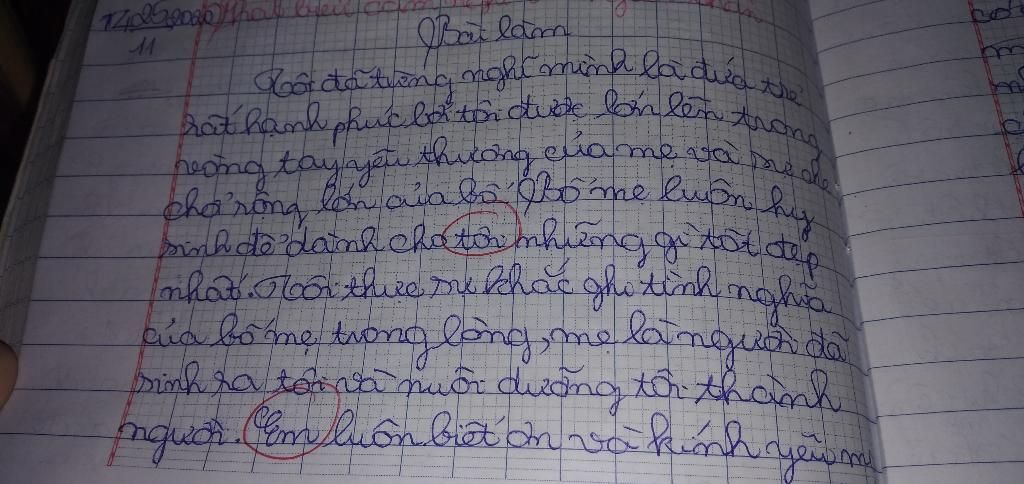 Bài làm
Tôi đã từng nghĩ mình là đứa trẻ
rất hạnh phúc bởi tôi được lớn lên trong
vòng tay yêu thương của mẹ và sự che
chở rộng lớn của bố. Bố mẹ luôn hy
sinh để dành cho tôi những gì tốt đẹp
nhất. Tôi thực sự khắc ghi tình nghĩa
của bố mẹ trong lòng, mẹ là người đã
sinh ra tôi và nuôi dưỡng tôi thành
người. Em luôn biết ơn và kính yêu mẹ